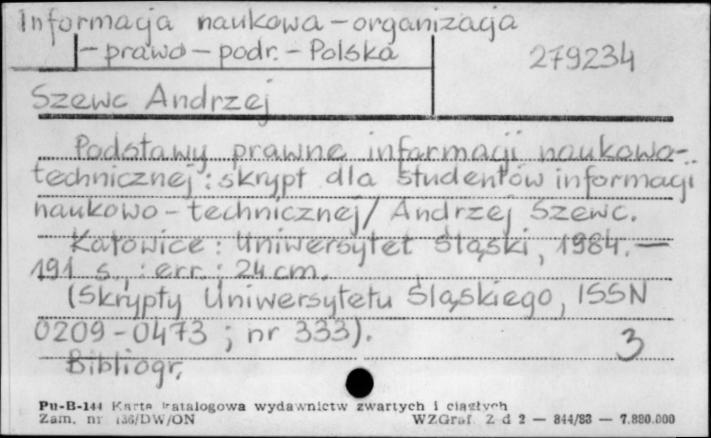 Informacja naukowa – organizacja
– prawo – podr. – Polska
279234
Szewc Andrzej
Podstawy prawne informacji naukowo-
technicznej : skrypt dla studentów informacji
naukowo – technicznej / Andrzej Szewc.
Katowice : Uniwersytet Śląski, 1984. —
191 s. : err. ; 24 cm.
(Skrypty Uniwersytetu Śląskiego, ISSN
0209-0473 ; nr 333).
3
Bibliogr.
Pu-B-144 Karta katalogowa wydawnictw zwartych i ciągłych
Zam. nr 136/DW/ON WZGraf. Z d 2 — 844/83 — 7.880.000